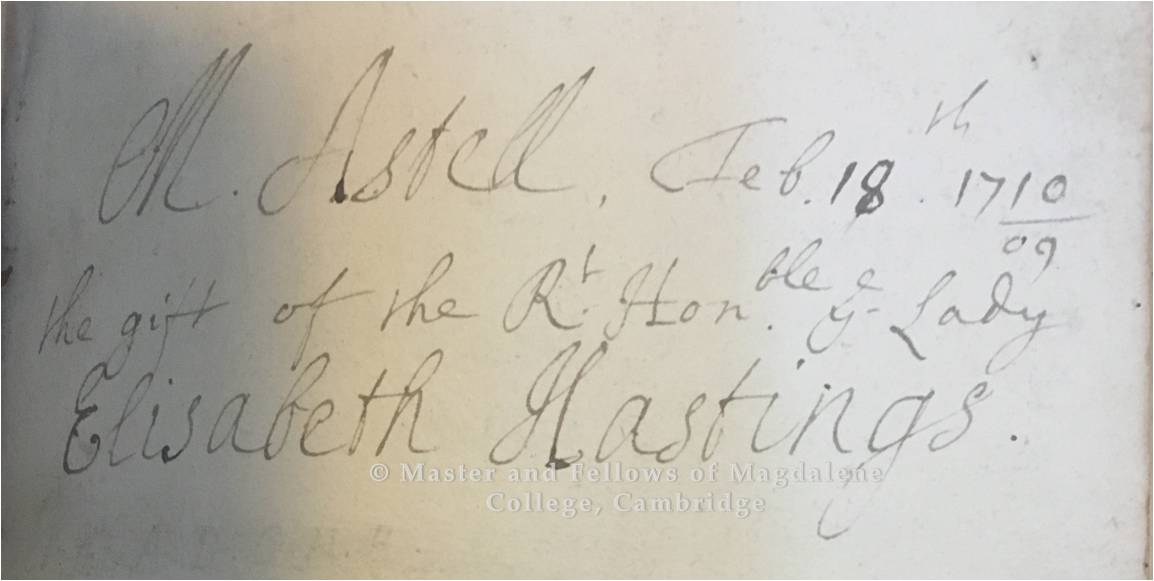 M. Astell, Feb. 18th. 1710/09
the gift of the Rt. Hon.ble ye Lady
Elisabeth Hastings.
© Master and Fellows of Magdalene
College, Cambridge